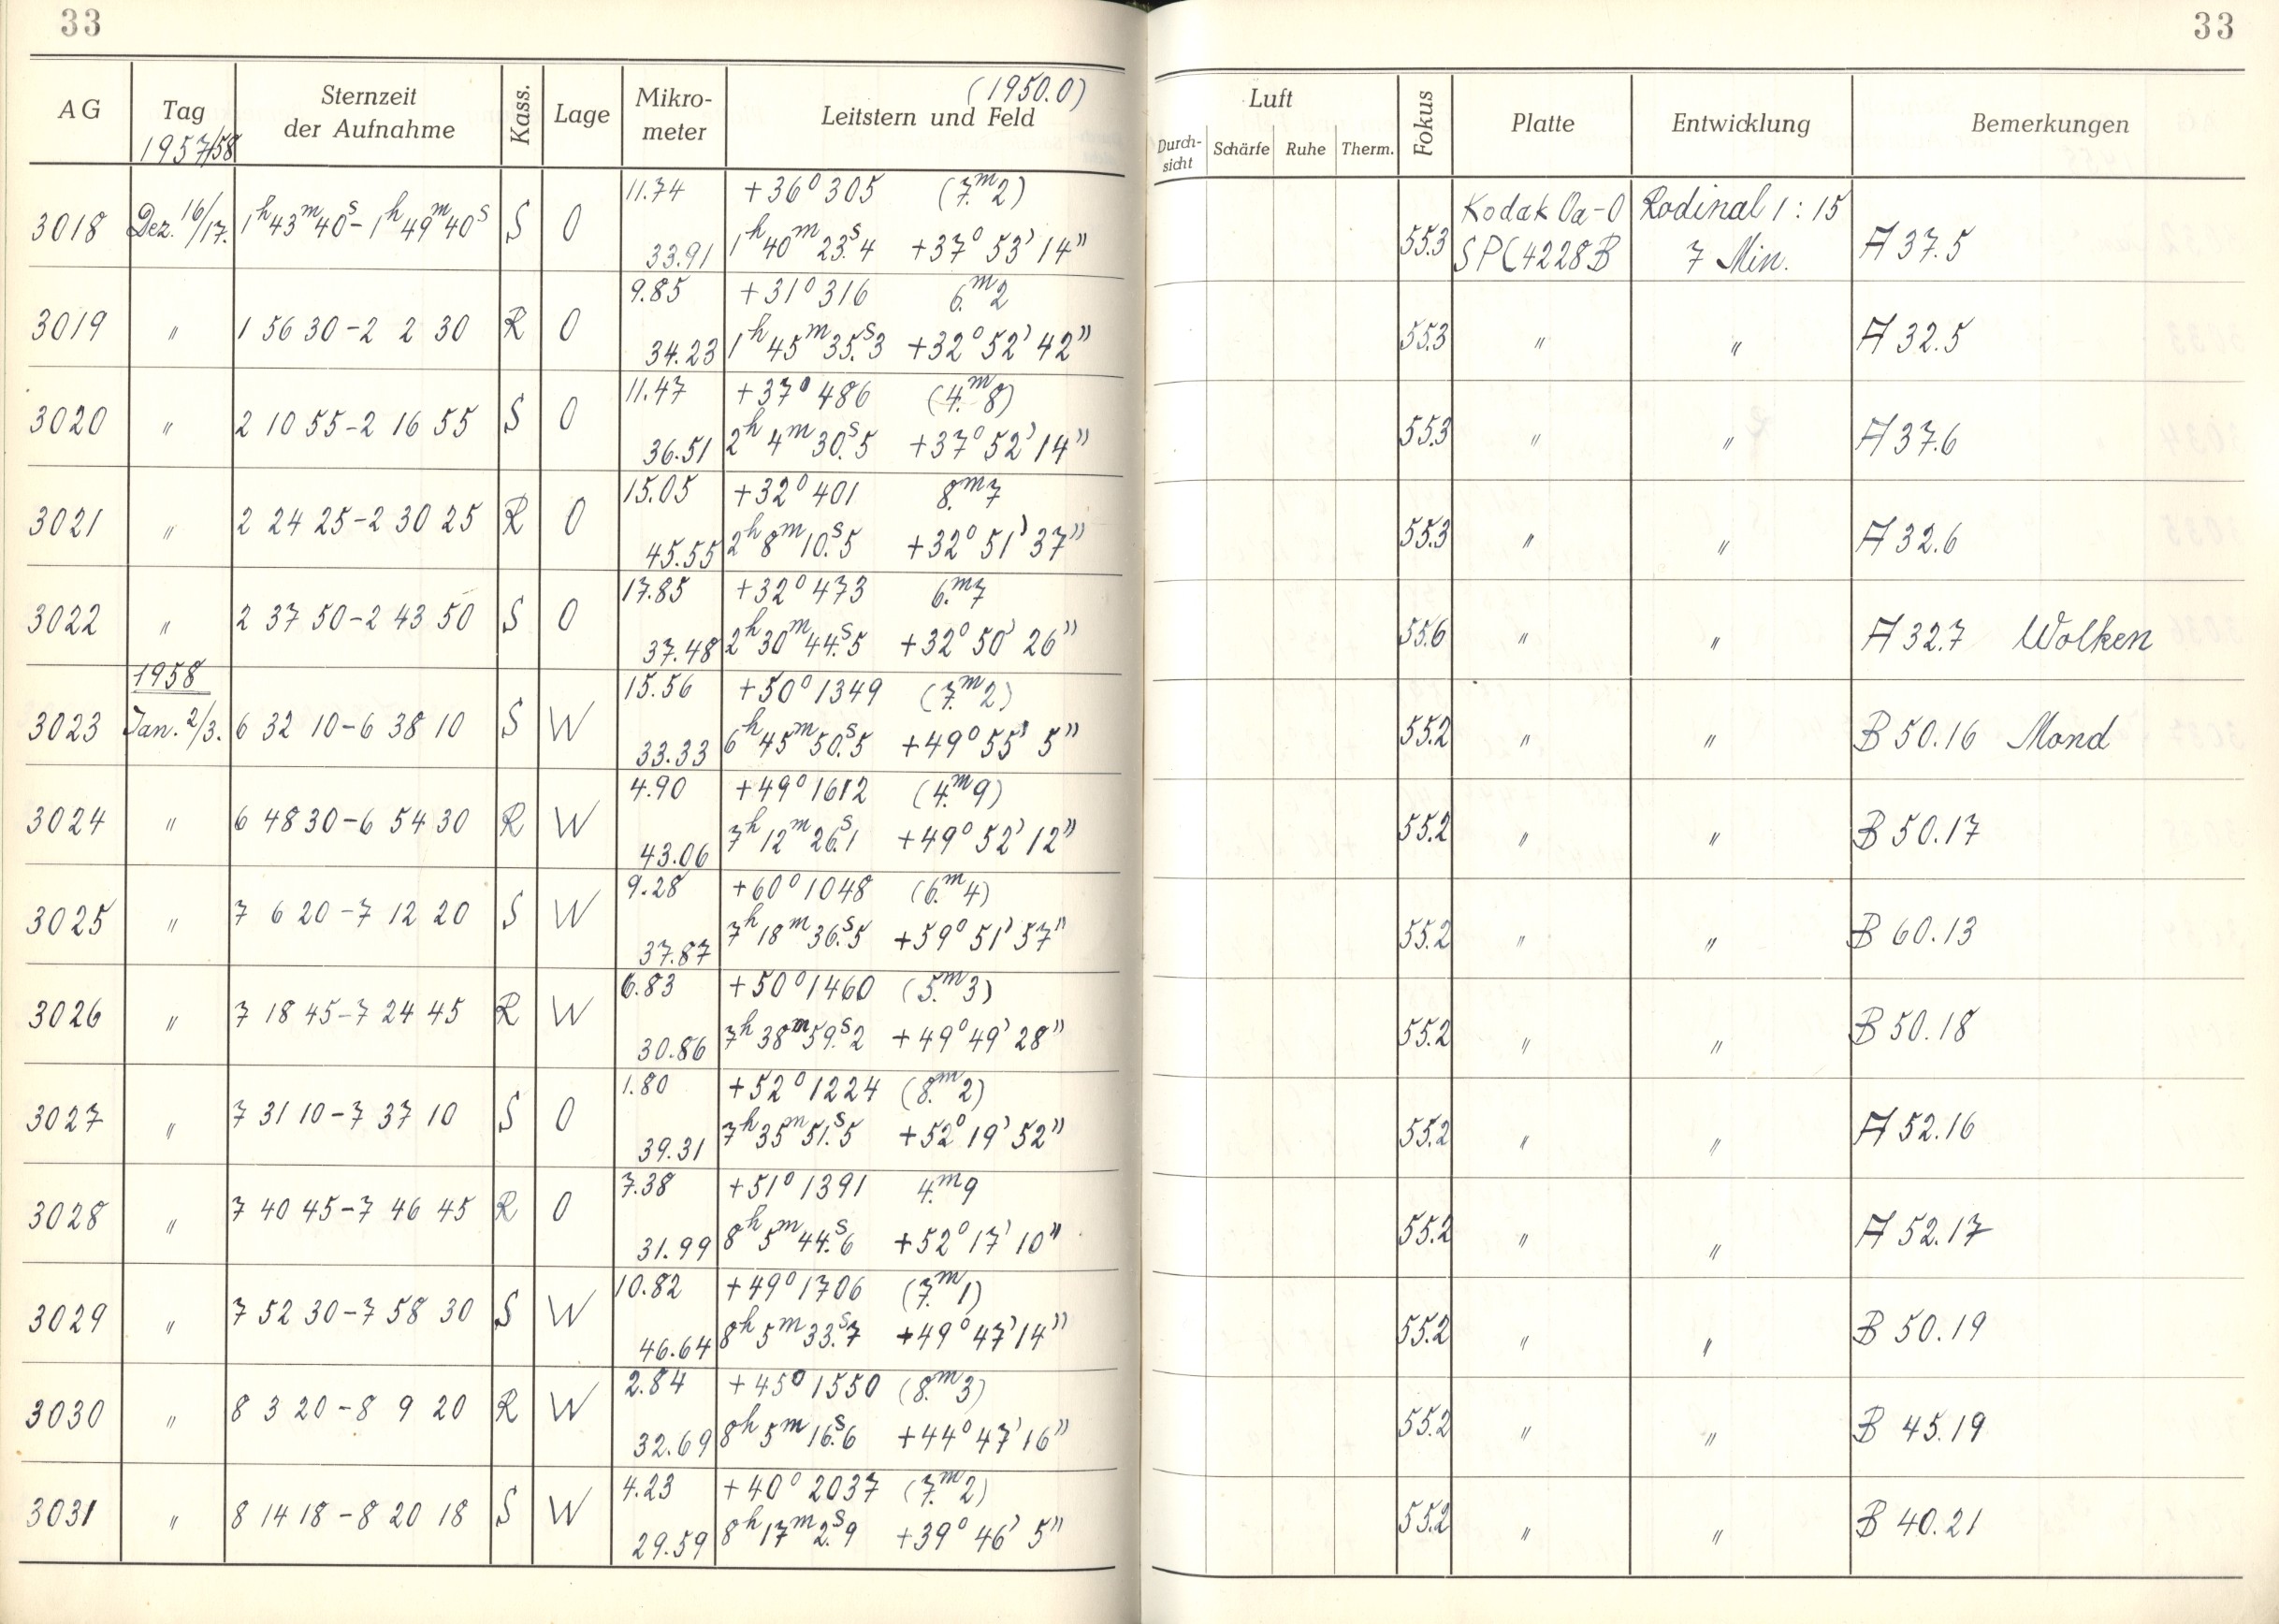 33
33
AG Tag 1957/58 Sternzeit der Aufnahme Kass. Lage Mikro-meter Leitstern und Feld (1950.0) Luft Durch-sicht Schärfe Ruhe Therm. Fokus Platte Entwicklung Bemerkungen
3018 Dez. 16/17. 1h43m40s-1h49m40s S O 11.74 +36° 305 (7.m2) 55.3 Kodak Oa-O Rodinal 1:15 A 37.5
33.91 1h 40m 23.s4 +37° 53' 14" SPC4228B 7 Min.
3019 " 1 56 30-2 2 30 R O 9.85 +31° 316 6.m2 55.3 " " A 32.5
34.23 1h 45m 35.s3 +32° 52' 42"
3020 " 2 10 55-2 16 55 S O 11.47 +37° 486 (4.m8) 55.3 " " A 37.6
36.51 2h 4m 30.s5 +37° 52' 14"
3021 " 2 24 25-2 30 25 R O 15.05 +32° 401 8.m7 55.3 " " A 32.6
45.55 2h 8m 10.s5 +32° 51' 37"
3022 " 2 37 50-2 43 50 S O 17.85 +32° 473 6.m7 55.6 " " A 32.7 Wolken
37.48 2h 30m 44.s5 +32° 50' 26"
1958
3023 Jan. 2/3. 6 32 10-6 38 10 S W 15.56 +50° 1349 (7.m2) 55.2 " " B 50.16 Mond
33.33 6h 45m 50.s5 +49° 55' 5"
3024 " 6 48 30-6 54 30 R W 4.90 +49° 1612 (4.m9) 55.2 " " B 50.17
43.06 7h 12m 26.s1 +49° 52' 12"
3025 " 7 6 20-7 12 20 S W 9.28 +60° 1048 (6.m4) 55.2 " " B 60.13
37.87 7h 18m 36.s5 +59° 51' 57"
3026 " 7 18 45-7 24 45 R W 6.83 +50° 1460 (5.m3) 55.2 " " B 50.18
30.86 7h 38m 59.s2 +49° 49' 28"
3027 " 7 31 10-7 37 10 S O 1.80 +52° 1224 (8.m2) 55.2 " " A 52.16
39.31 7h 35m 51.s5 +52° 19' 52"
3028 " 7 40 45-7 46 45 R O 7.38 +51° 1391 4.m9 55.2 " " A 52.17
31.99 8h 5m 44.s6 +52° 17' 10"
3029 " 7 52 30-7 58 30 S W 10.82 +49° 1706 (7.m1) 55.2 " " B 50.19
46.64 8h 5m 33.s7 +49° 47' 14"
3030 " 8 3 20-8 9 20 R W 2.84 +45° 1550 (8.m3) 55.2 " " B 45.19
32.69 8h 5m 16.s6 +44° 47' 16"
3031 " 8 14 18-8 20 18 S W 4.23 +40° 2037 (7.m2) 55.2 " " B 40.21
29.59 8h 17m 2.s9 +39° 46' 5"